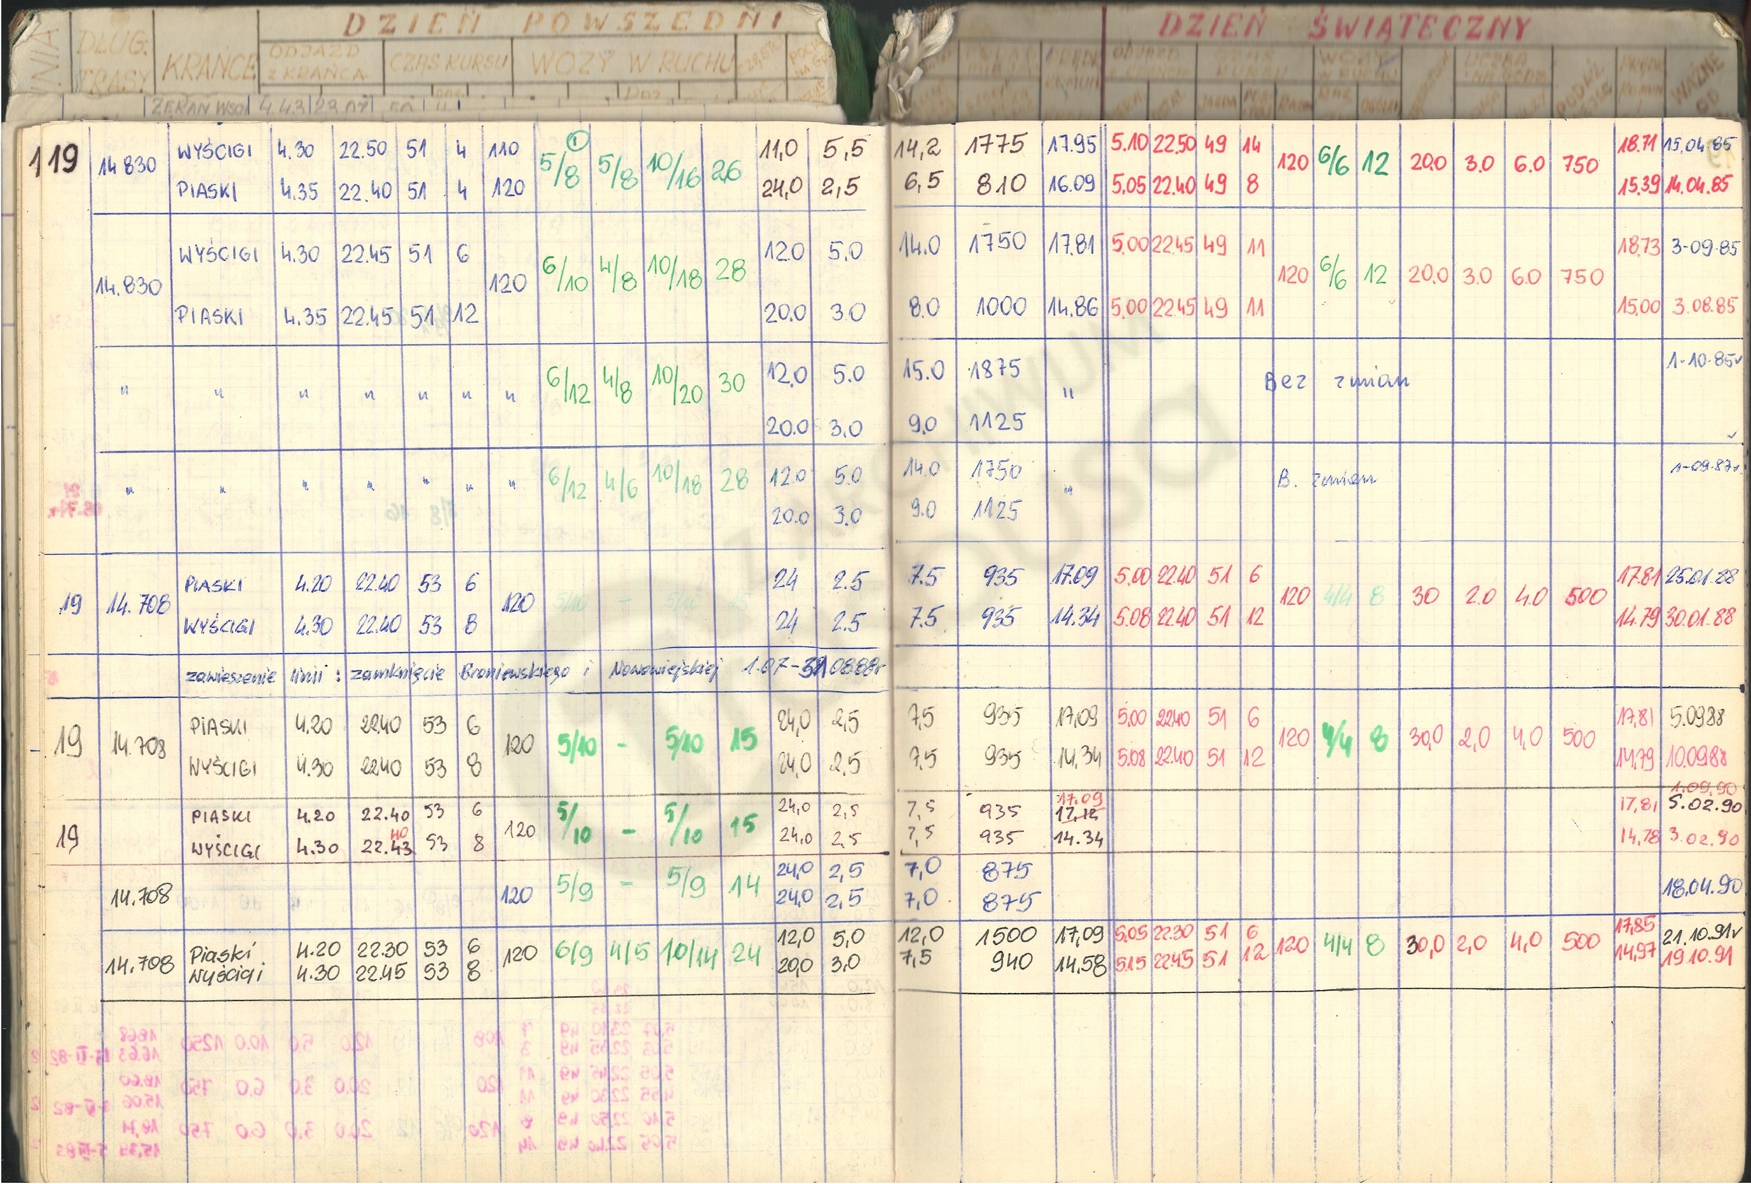 DZIEŃ POWSZEDNI DZIEŃ ŚWIĄTECZNY
DŁUG. TRASY KRAŃCE ODJAZD Z KRAŃCA CZAS KURSU WOZY W RUCHU
WAŻNE OD
ŻERAŃ WSCH 4.43 23.07
119 14.830 WYŚCIGI 4.30 22.50 51 4 110 5/8 1 5/8 10/16 26 11,0 5,5 14,2 1775 17.95 5.10 22.50 49 14 120 6/6 12 20.0 3.0 6.0 750 18.71 15.04.85
PIASKI 4.35 22.40 51 4 120 24,0 2,5 6,5 810 16.09 5.05 22.40 49 8 15.39 14.04.85
14.830 WYŚCIGI 4.30 22.45 51 6 120 6/10 4/8 10/18 28 12.0 5.0 14.0 1750 17.81 5.00 22.45 49 11 120 6/6 12 20.0 3.0 6.0 750 18.73 3-09-85
PIASKI 4.35 22.45 51 12 20.0 3.0 8.0 1000 14.86 5.00 22.45 49 11 15.00 3.08.85
" " " " " " " 6/12 4/8 10/20 30 12.0 5.0 15.0 1875 " Bez zmian 1-10-85
20.0 3.0 9.0 1125
" " " " " " " 6/12 4/6 10/18 28 12.0 5.0 14.0 1750 " B. zmian 1-09-87
20.0 3.0 9.0 1125
19 14.708 PIASKI 4.20 22.40 53 6 120 5/10 - 5/10 15 24 2.5 7.5 935 17.09 5.00 22.40 51 6 120 4/4 8 30 2.0 4.0 500 17.81 25.01.88
WYŚCIGI 4.30 22.40 53 8 24 2.5 7.5 935 14.34 5.08 22.40 51 12 14.79 30.01.88
zawieszenie linii : zamknięcie Broniewskiego i Nowowiejskiej 1.07-31.08.88r
19 14.708 PIASKI 4.20 22.40 53 6 120 5/10 - 5/10 15 24,0 2,5 7,5 935 17,09 5.00 22.40 51 6 120 4/4 8 30,0 2,0 4,0 500 17,81 5.09.88
WYŚCIGI 4.30 22.40 53 8 24,0 2,5 7,5 935 14,34 5.08 22.40 51 12 14,79 10.09.88
17.09 1.09.90
19 PIASKI 4.20 22.40 53 6 120 5/10 - 5/10 15 24,0 2,5 7,5 935 17,12 17,81 5.02.90
40
WYŚCIGI 4.30 22.43 53 8 24,0 2,5 7,5 935 14.34 14,78 3.02.90
14.708 120 5/9 - 5/9 14 24,0 2,5 7,0 875 18.04.90
24,0 2,5 7,0 875
14.708 Piaski 4.20 22.30 53 6 120 6/9 4/5 10/14 24 12,0 5,0 12,0 1500 17,09 5.05 22.30 51 6 120 4/4 8 30,0 2,0 4,0 500 17,85 21.10.91
Wyścigi 4.30 22.45 53 8 20,0 3,0 7,5 940 14,58 5.15 22.45 51 12 14,97 19.10.91